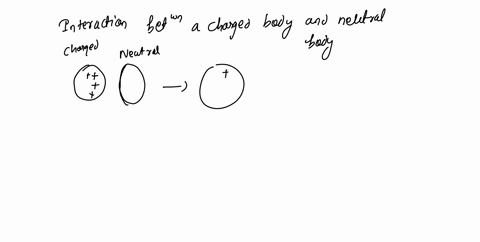 Interaction betwn a charged body and neutral
body
Charged Neutral
++
+
+
+